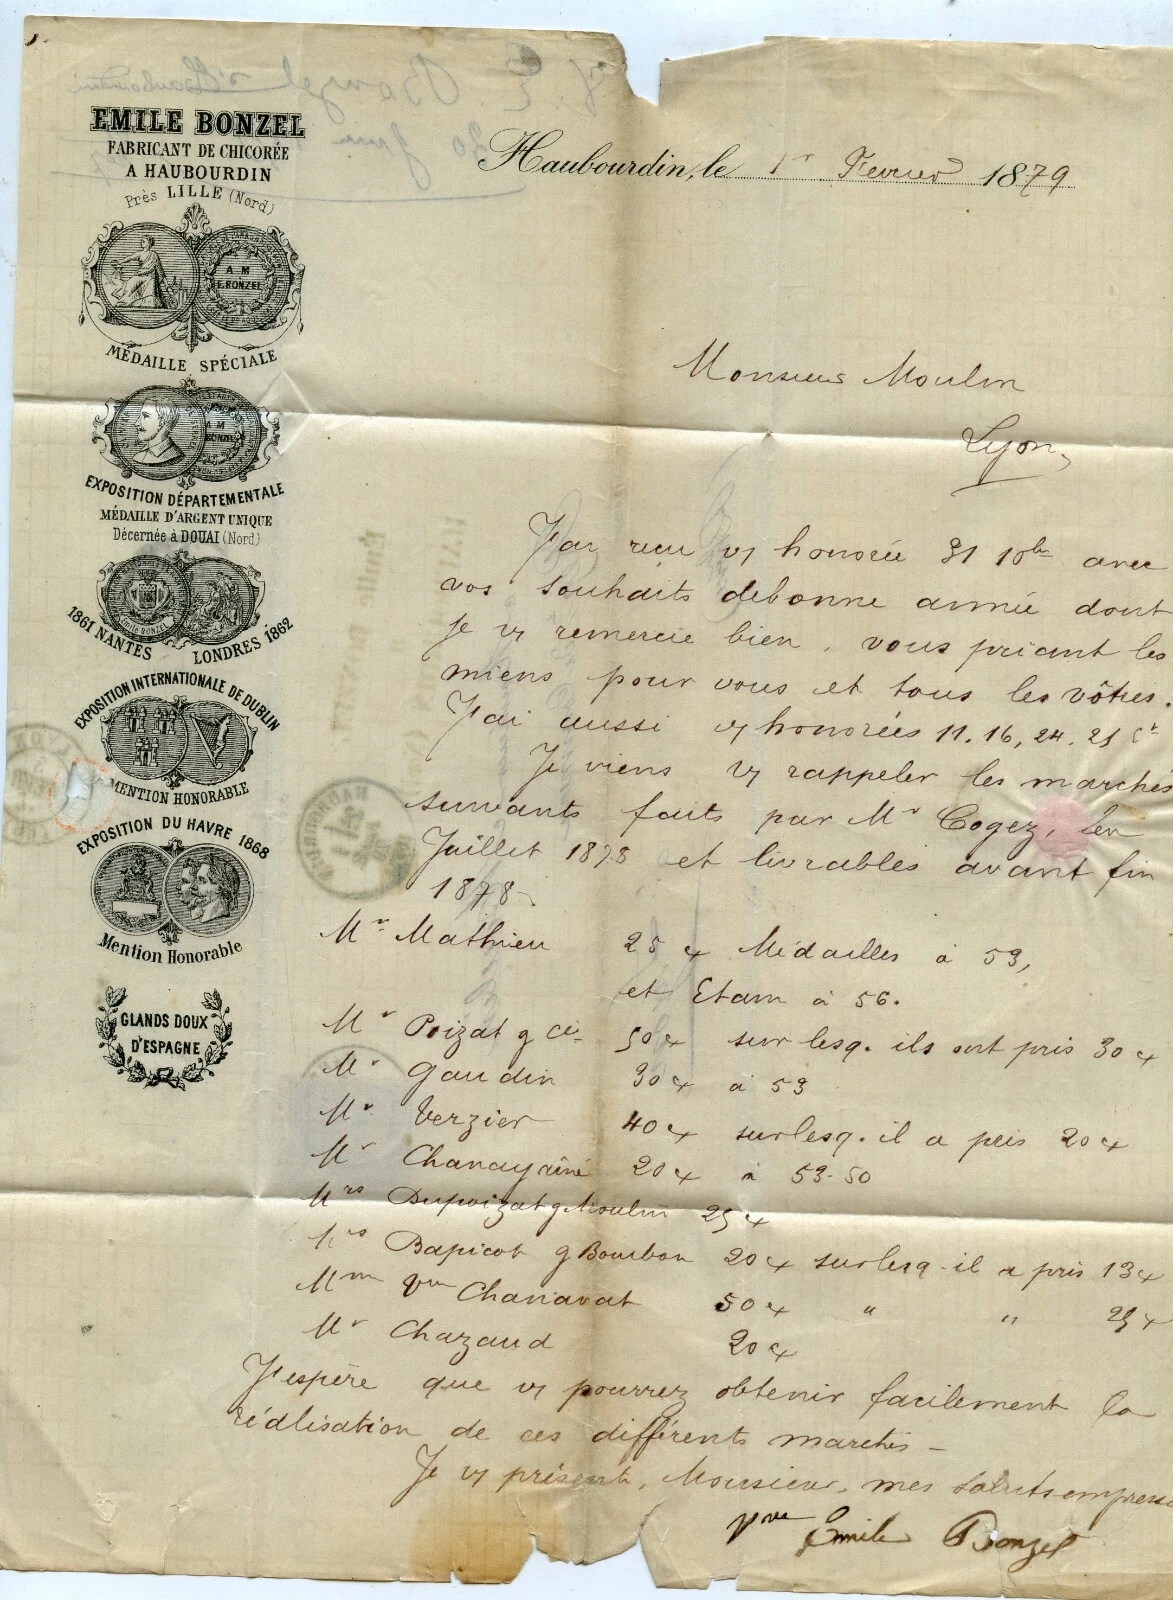 EMILE BONZEL
FABRICANT DE CHICORÉE
A HAUBOURDIN
Près LILLE (Nord)
A M
E. BONZEL
MÉDAILLE SPÉCIALE
A M
BONZEL
EXPOSITION DÉPARTEMENTALE
MÉDAILLE D'ARGENT UNIQUE
Décernée à DOUAI (Nord)
1861 NANTES LONDRES 1862
EXPOSITION INTERNATIONALE DE DUBLIN
MENTION HONORABLE
EXPOSITION DU HAVRE 1868
Mention Honorable
GLANDS DOUX
D'ESPAGNE
Haubourdin, le 1r Février 1879
Monsieur Moulin
Lyon
J'ai reçu vs honorée 31 10bre avec
vos souhaits debonne année dont
je vs remercie bien, vous priant les
miens pour vous et tous les vôtres.
J'ai aussi vs honorées 11. 16, 24. 25 ct
Je viens vs rappeler les marchés
suivants faits par Mr Cogez, en
Juillet 1878 et livrables avant fin
1878.
Mr Mathieu 25 cx Médailles à 53,
et Etam à 56.
Mr Poizat & Cie 50 cx sur lesq. ils ont pris 30 cx
Mr Gaudin 30 cx à 53
Mr Verzier 40 cx sur lesq. il a pris 20 cx
Mr Chanay aîné 20 cx à 53-50
Mrs Dupoizat & Moulin 25 cx
Mrs Bapicot & Bourbon 20 cx sur lesq. il a pris 13 cx
Mme Vve Chanavat 50 cx " " 25 cx
Mr Chazaud 20 cx
J'espère que vs pourrez obtenir facilement la
réalisation de ces différents marchés -
Je vs présente, Monsieur, mes saluts empressés
Vve Emile Bonzel